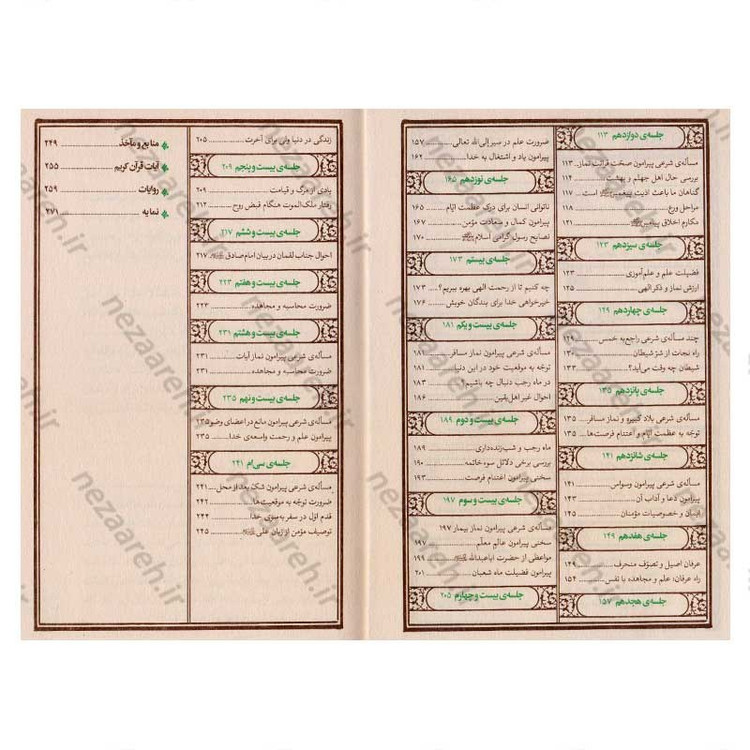 جلسه‌ی دوازدهم ۱۱۳
مسأله‌ی شرعی پیرامون صحت قرائت نماز ۱۱۳
بررسی حال اهل جهنّم و بهشت ۱۱۴
گناهان ما باعث اذیت پیغمبرﷺ است ۱۱۷
مراحل ورع ۱۱۸
مکارم اخلاق پیغمبرﷺ ۱۲۱
جلسه‌ی سیزدهم ۱۲۳
فضیلت علم و علم‌آموزی ۱۲۳
ارزش نماز و ذکر الهی ۱۲۵
جلسه‌ی چهاردهم ۱۲۹
چند مسأله‌ی شرعی راجع‌به خمس ۱۲۹
راه نجات از شرّ شیطان ۱۳۰
شیطان چه وقت می‌آید؟ ۱۳۳
جلسه‌ی پانزدهم ۱۳۵
مسأله‌ی شرعی بلاد کبیره و نماز مسافر ۱۳۵
توجّه به عظمت ایّام و اغتنام فرصت‌ها ۱۳۵
جلسه‌ی شانزدهم ۱۴۱
مسأله‌ی شرعی پیرامون وسواس ۱۴۱
پیرامون دعا و آداب آن ۱۴۳
ایمان و خصوصیات مؤمنان ۱۴۵
جلسه‌ی هفدهم ۱۴۹
عرفان اصیل و تصوّف منحرف ۱۴۹
راه عرفان: علم و مجاهده با نفس ۱۵۴
جلسه‌ی هجدهم ۱۵۷
ضرورت علم در سیر إلی‌الله تعالی ۱۵۷
پیرامون یاد و اشتغال به خدا ۱۶۲
جلسه‌ی نوزدهم ۱۶۵
ناتوانی انسان برای درک عظمت ایّام ۱۶۵
پیرامون کمال و سعادت مؤمن ۱۶۷
نصایح رسول گرامی اسلامﷺ ۱۷۰
جلسه‌ی بیستم ۱۷۳
چه کنیم تا از رحمت الهی بهره ببریم؟ ۱۷۳
خیرخواهی خدا برای بندگان خویش ۱۷۶
جلسه‌ی بیست و یکم ۱۸۱
مسأله‌ی شرعی پیرامون نماز مسافر ۱۸۱
توجّه به موقعیت خود در این دنیا ۱۸۱
در ماه رجب دنبال چه باشیم؟ ۱۸۳
احوال غیر اهل‌یقین ۱۸۶
جلسه‌ی بیست و دوم ۱۸۹
ماه رجب و شب‌زنده‌داری ۱۸۹
بررسی برخی دلائل سوء خاتمه ۱۹۰
سخنی پیرامون اغتنام فرصت ۱۹۳
جلسه‌ی بیست و سوم ۱۹۷
مسأله‌ی شرعی پیرامون نماز بیمار ۱۹۷
سخنی پیرامون عالمِ معلّم ۱۹۷
مواعظی از حضرت اباعبدالله ۱۹۹
پیرامون فضیلت ماه شعبان ۲۰۱
جلسه‌ی بیست و چهارم ۲۰۵
زندگی در دنیا ولی برای آخرت ۲۰۵
جلسه‌ی بیست و پنجم ۲۰۹
یادی از مرگ و قیامت ۲۰۹
رفتار ملک‌الموت هنگام قبض روح ۲۱۲
جلسه‌ی بیست و ششم ۲۱۷
احوال جناب لقمان در بیان امام صادق ۲۱۷
جلسه‌ی بیست و هفتم ۲۲۳
ضرورت محاسبه و مجاهده ۲۲۳
جلسه‌ی بیست و هشتم ۲۳۱
مسأله‌ی شرعی پیرامون نماز آیات ۲۳۱
ضرورت محاسبه و مجاهده ۲۳۱
جلسه‌ی بیست و نهم ۲۳۵
مسأله‌ی شرعی پیرامون مانع در اعضای وضو ۲۳۵
پیرامون علم و رحمت واسعه‌ی خدا ۲۳۵
جلسه‌ی سی‌ام ۲۴۱
مسأله‌ی شرعی پیرامون شک بعد از محل ۲۴۱
ضرورت توجّه به موقعیت‌ها ۲۴۲
قدم اوّل در سفر به‌سوی خدا ۲۴۴
توصیف مؤمن از زبان علی ۲۴۵
منابع و مآخذ ۲۴۹
آیات قرآن کریم ۲۵۵
روایات ۲۵۹
نمایه ۲۷۱
nezaareh.ir